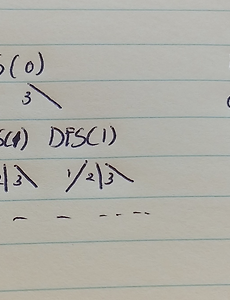 S(0)
3
S(1) DFS(1)
2 3 1 2 3